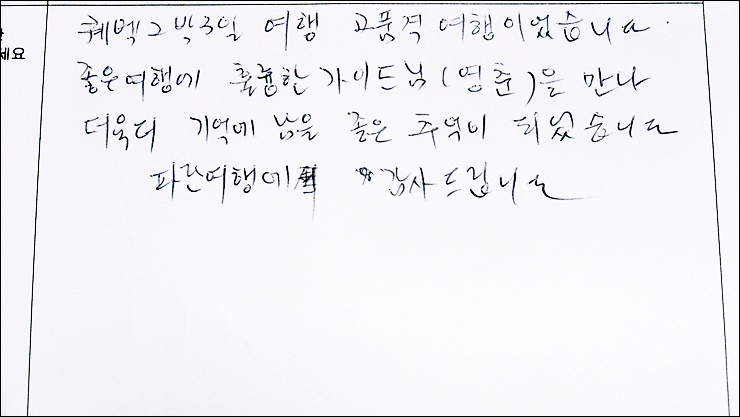 세요
퀘벡 2박3일 여행 고품격 여행이었습니다.
좋은여행에 훌륭한 가이드님(영춘)을 만나
더욱더 기억에 남을 좋은 추억이 되었습니다
파란여행에 감사드립니다